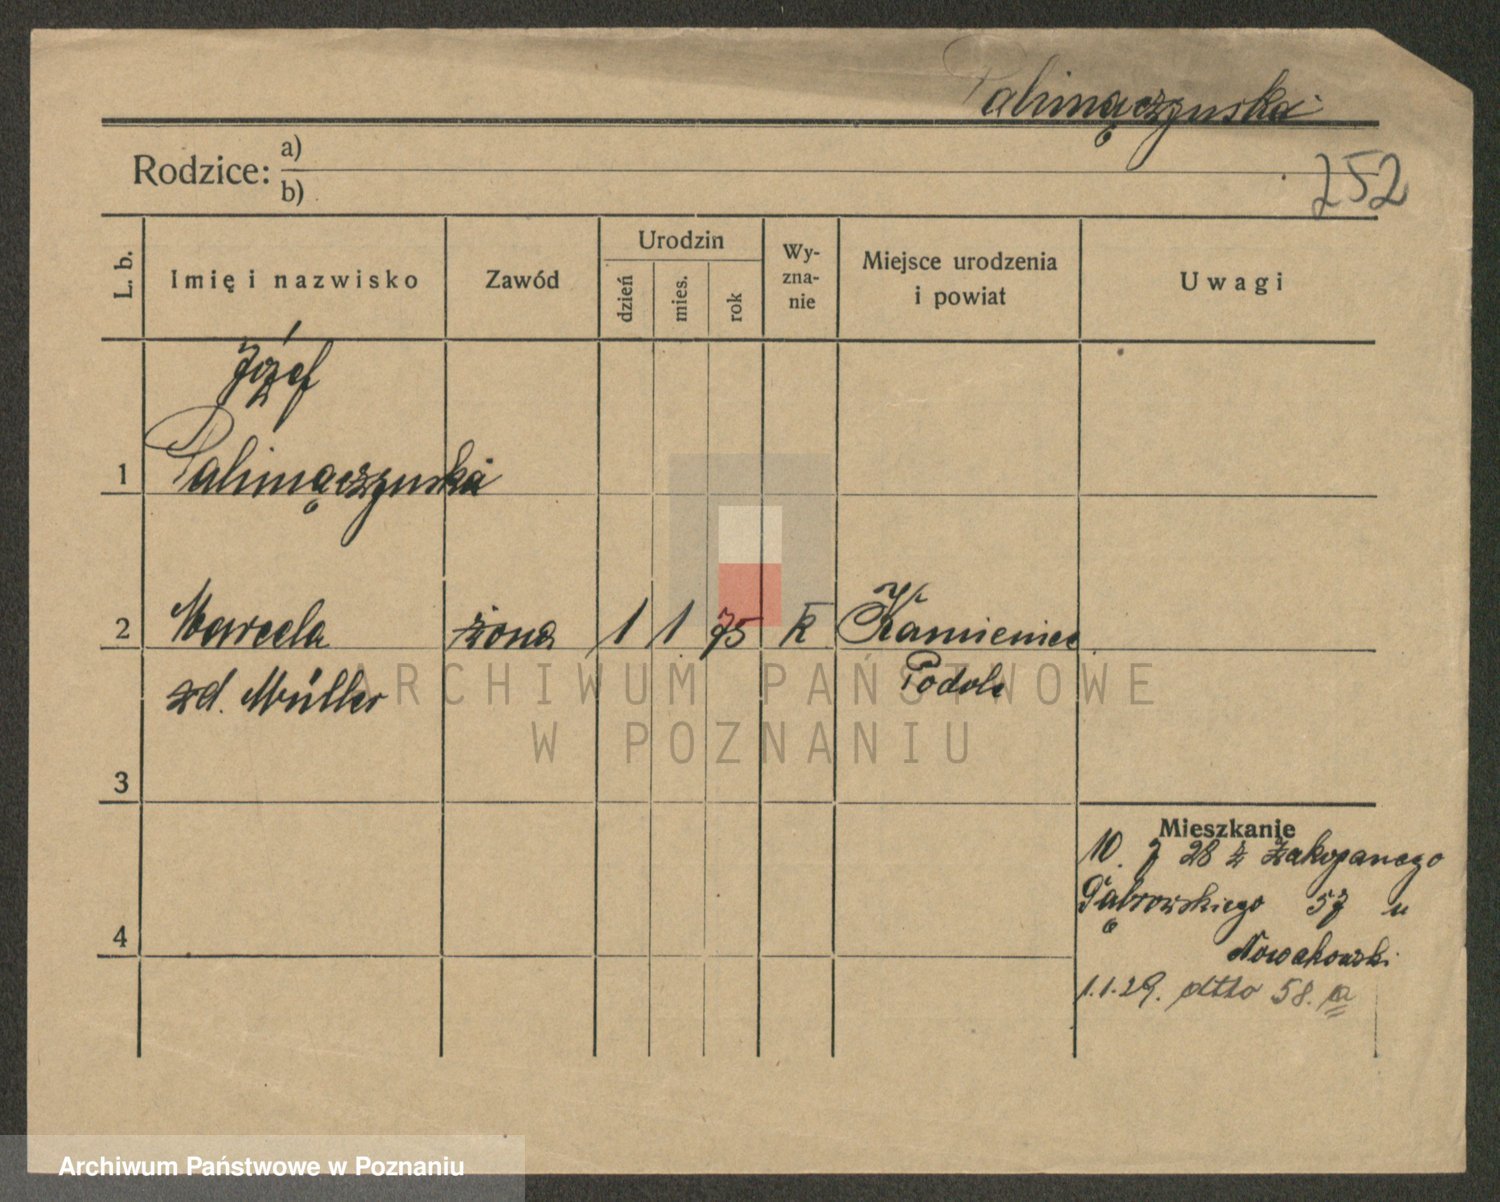 Palimączynska
Rodzice: a)
b)
252
L. b.
Imię i nazwisko
Zawód
Urodzin
dzień
mies.
rok
Wy-
zna-
nie
Miejsce urodzenia
i powiat
Uwagi
Józef
1 Palimączynska
2 Marcela żona 1 1 75 k Kamieniec
zd. Müller Podole
3
Mieszkanie
10. 7 28 z Zakopanego
Dąbrowskiego 57 u
Nowakowski
4
1.1.29. dtto 58. a
ARCHIWUM PAŃSTWOWE
W POZNANIU
Archiwum Państwowe w Poznaniu